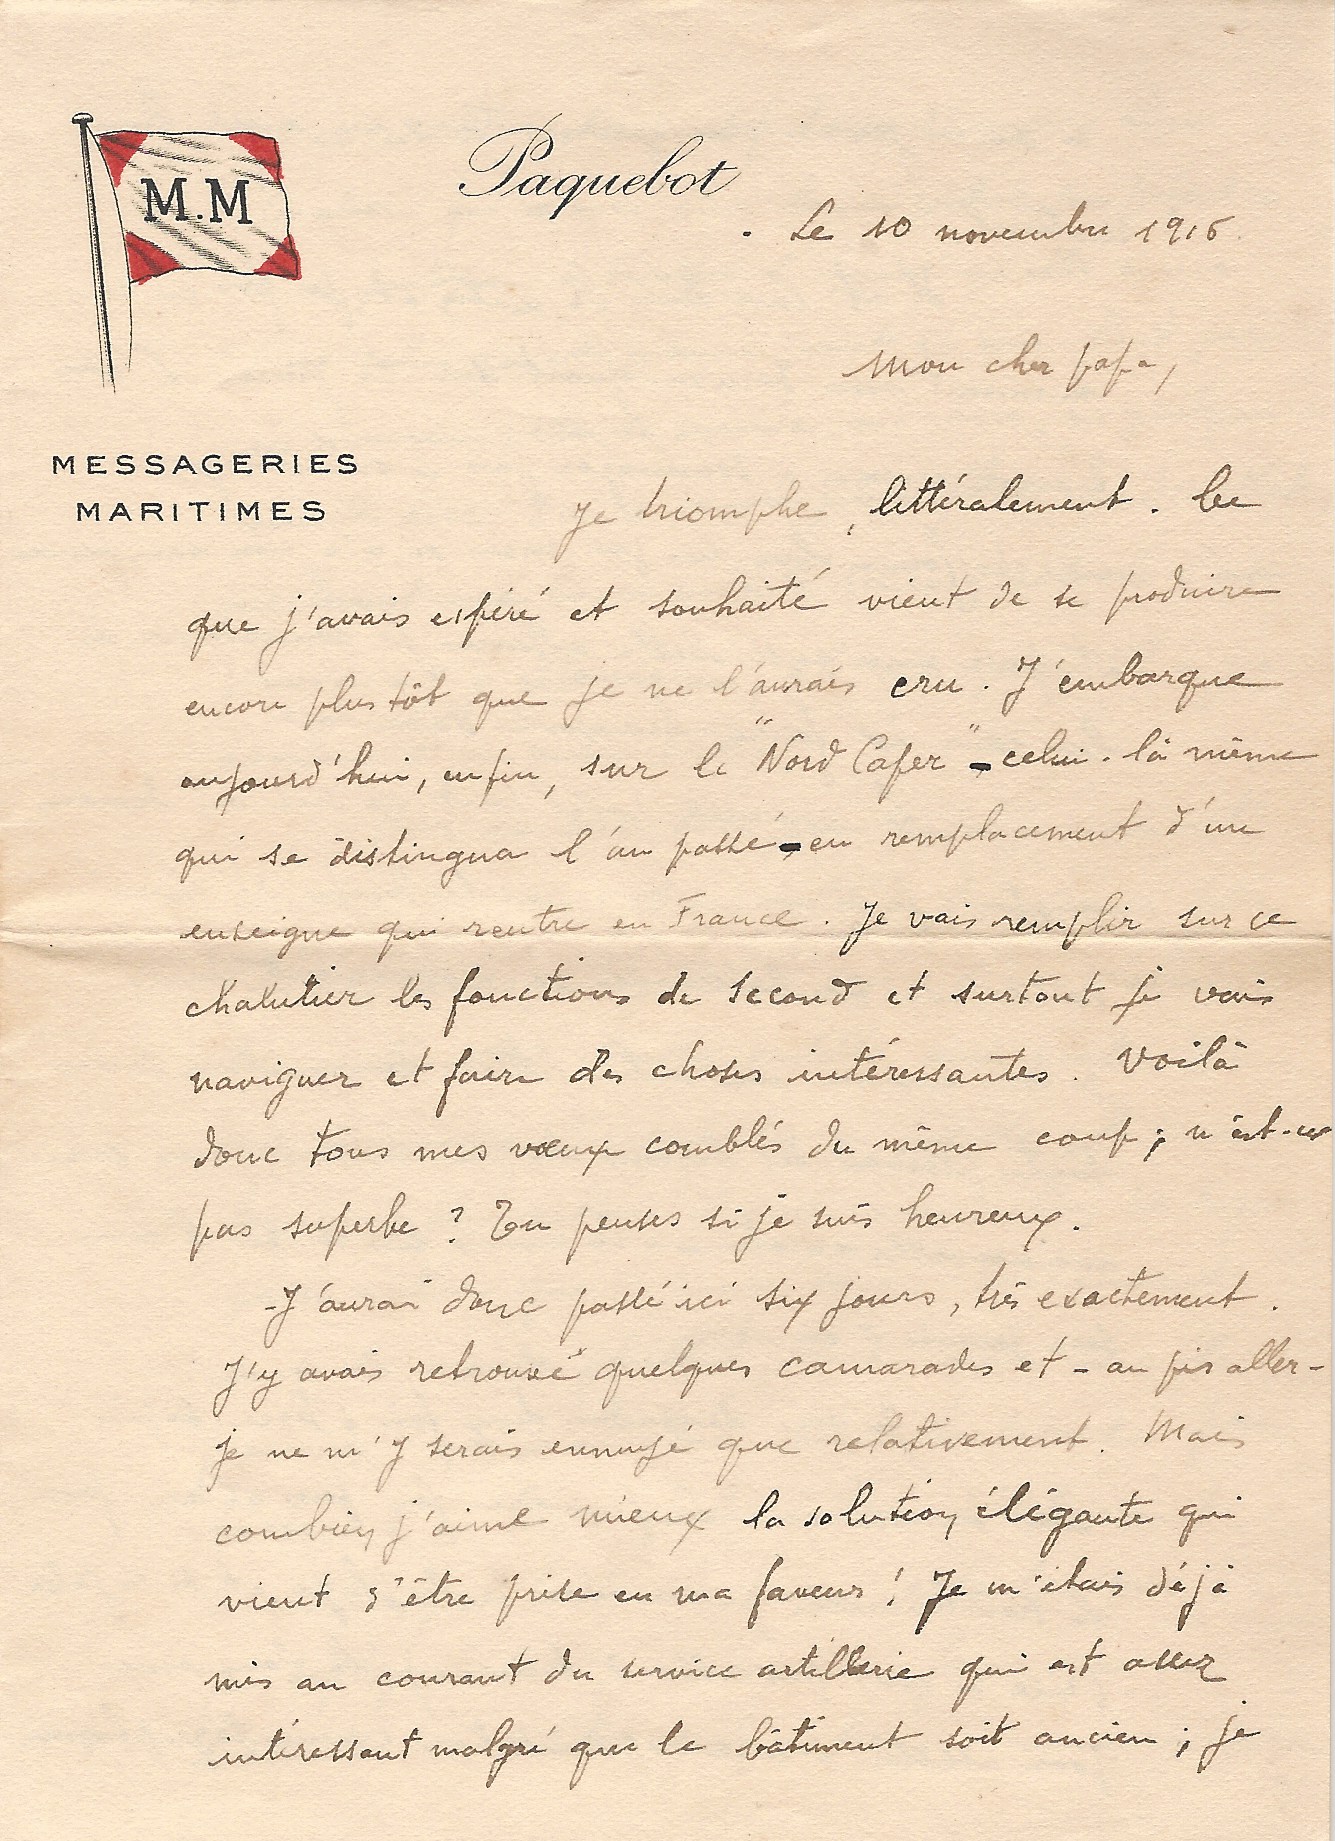 M.M
Paquebot
. Le 10 novembre 1916.
Mon cher papa,
MESSAGERIES
MARITIMES
Je triomphe, littéralement. Ce
que j'avais espéré et souhaité vient de se produire
encore plus tôt que je ne l'aurais cru. J'embarque
aujourd'hui, enfin, sur le "Nord Caper" - celui-là même
qui se distingua l'an passé - en remplacement d'un
enseigne qui rentre en France. Je vais remplir sur ce
chalutier les fonctions de second et surtout je vais
naviguer et faire des choses intéressantes. Voilà
donc tous mes vœux comblés du même coup ; n'est-ce
pas superbe ? Tu penses si je suis heureux.
- J'aurai donc passé ici six jours, très exactement.
J'y avais retrouvé quelques camarades et - au pis aller -
je ne m'y serais ennuyé que relativement. Mais
combien j'aime mieux la solution élégante qui
vient d'être prise en ma faveur ! Je m'étais déjà
mis au courant du service artillerie qui est assez
intéressant malgré que le bâtiment soit ancien ; je